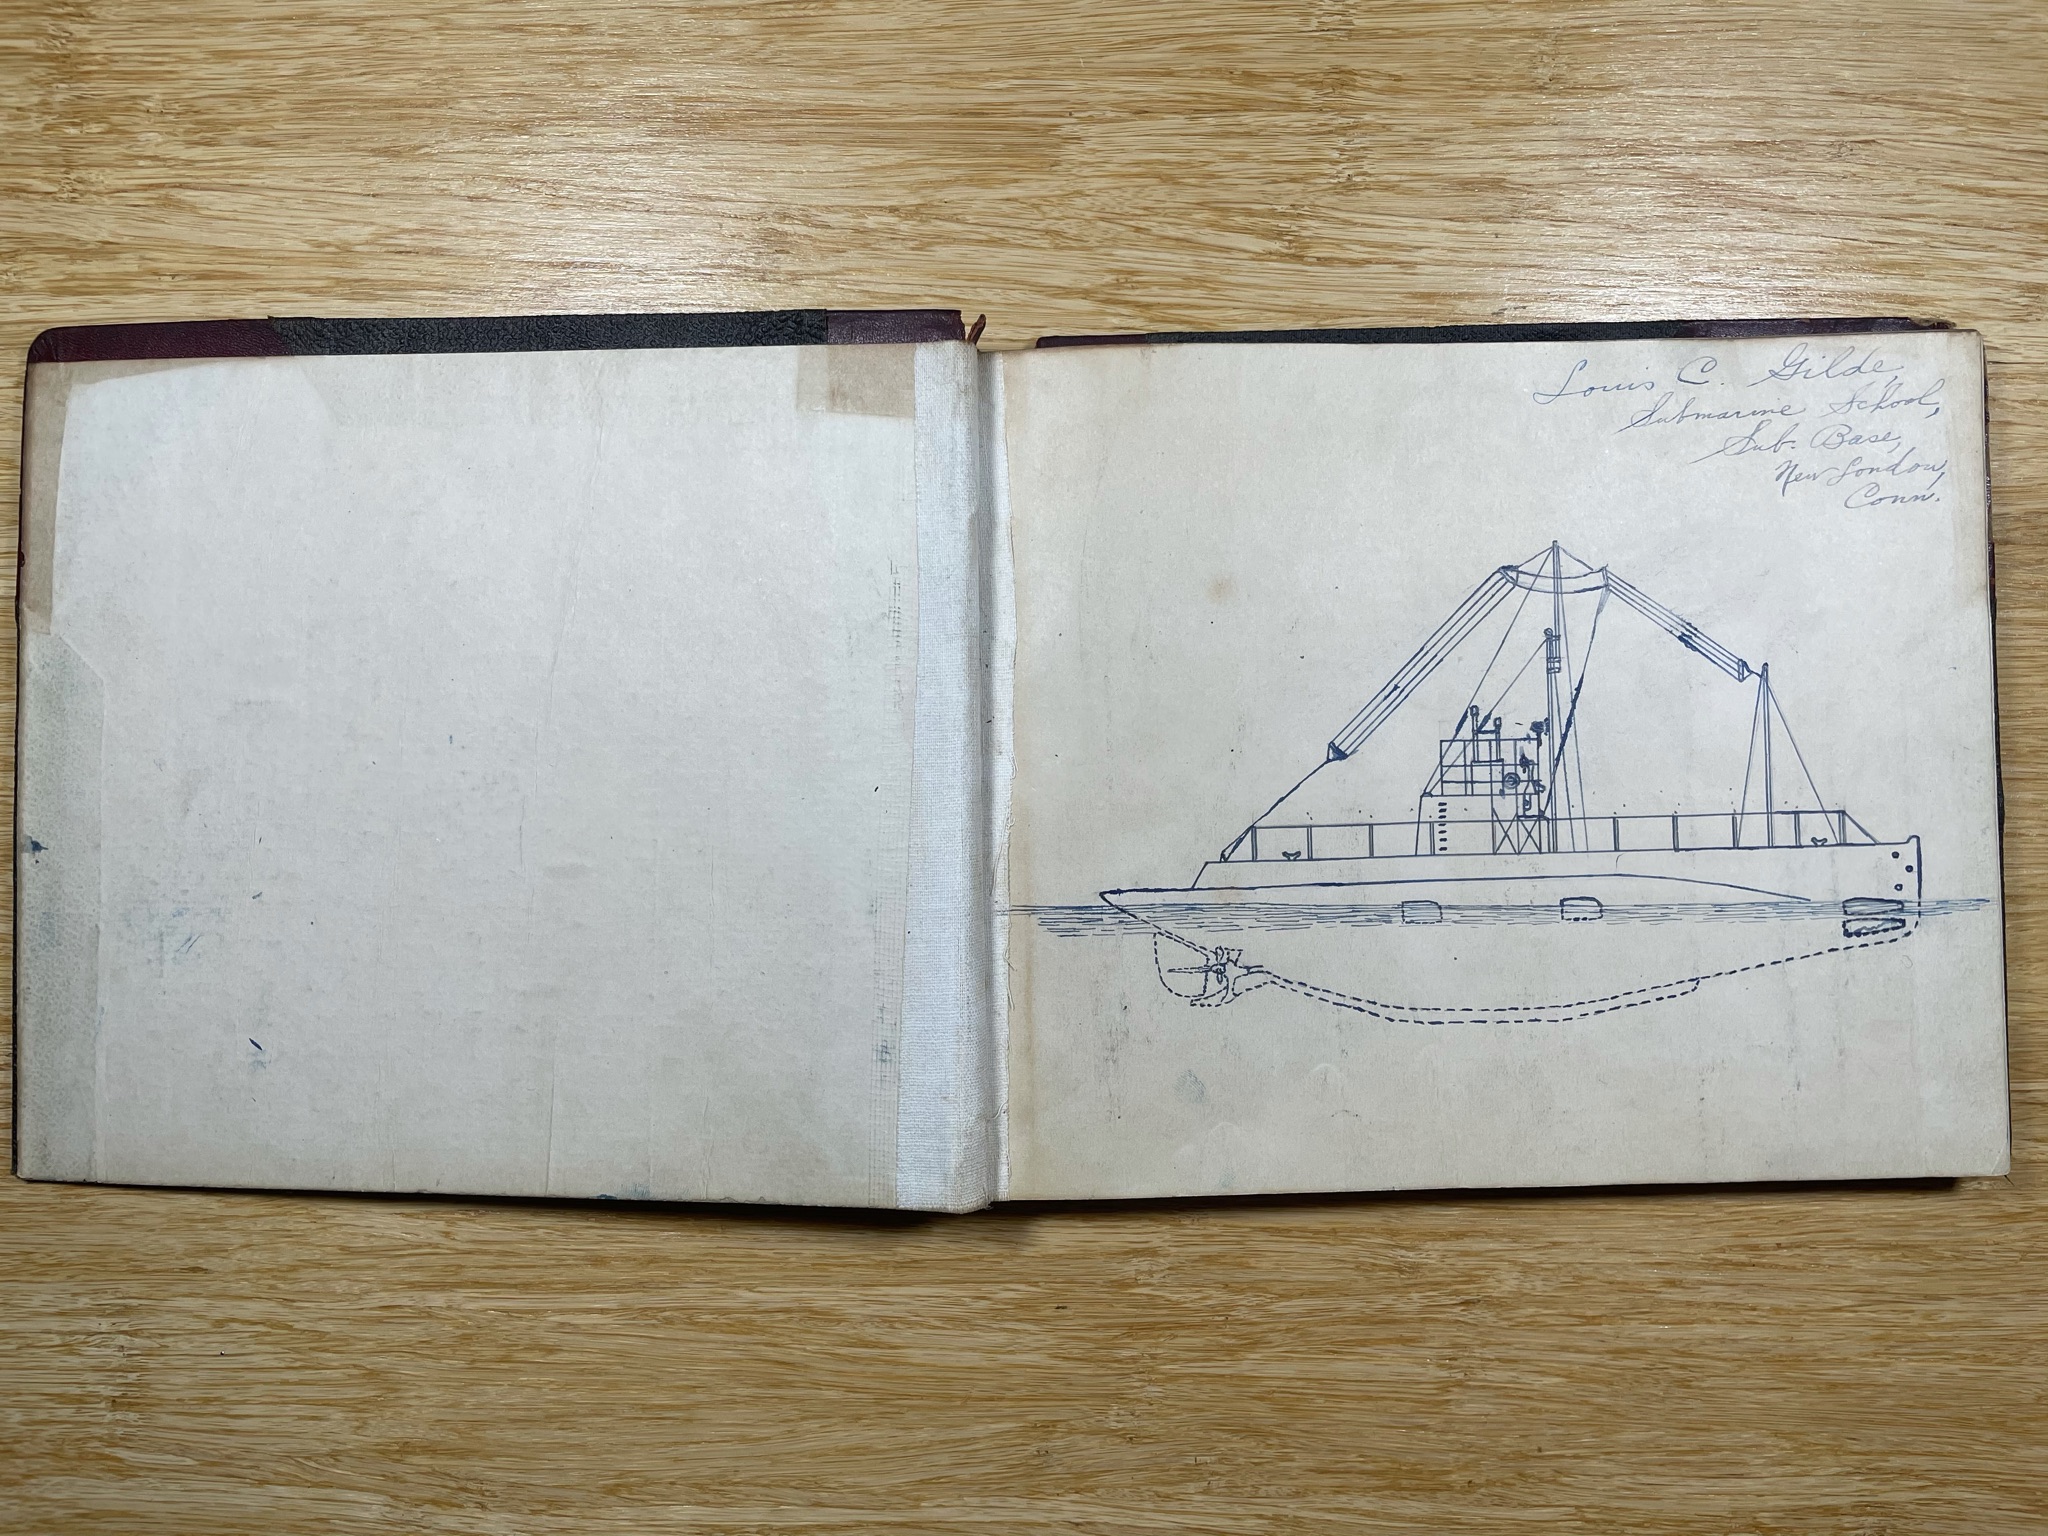 Louis C. Gilde,
Submarine School,
Sub. Base,
New London,
Conn.